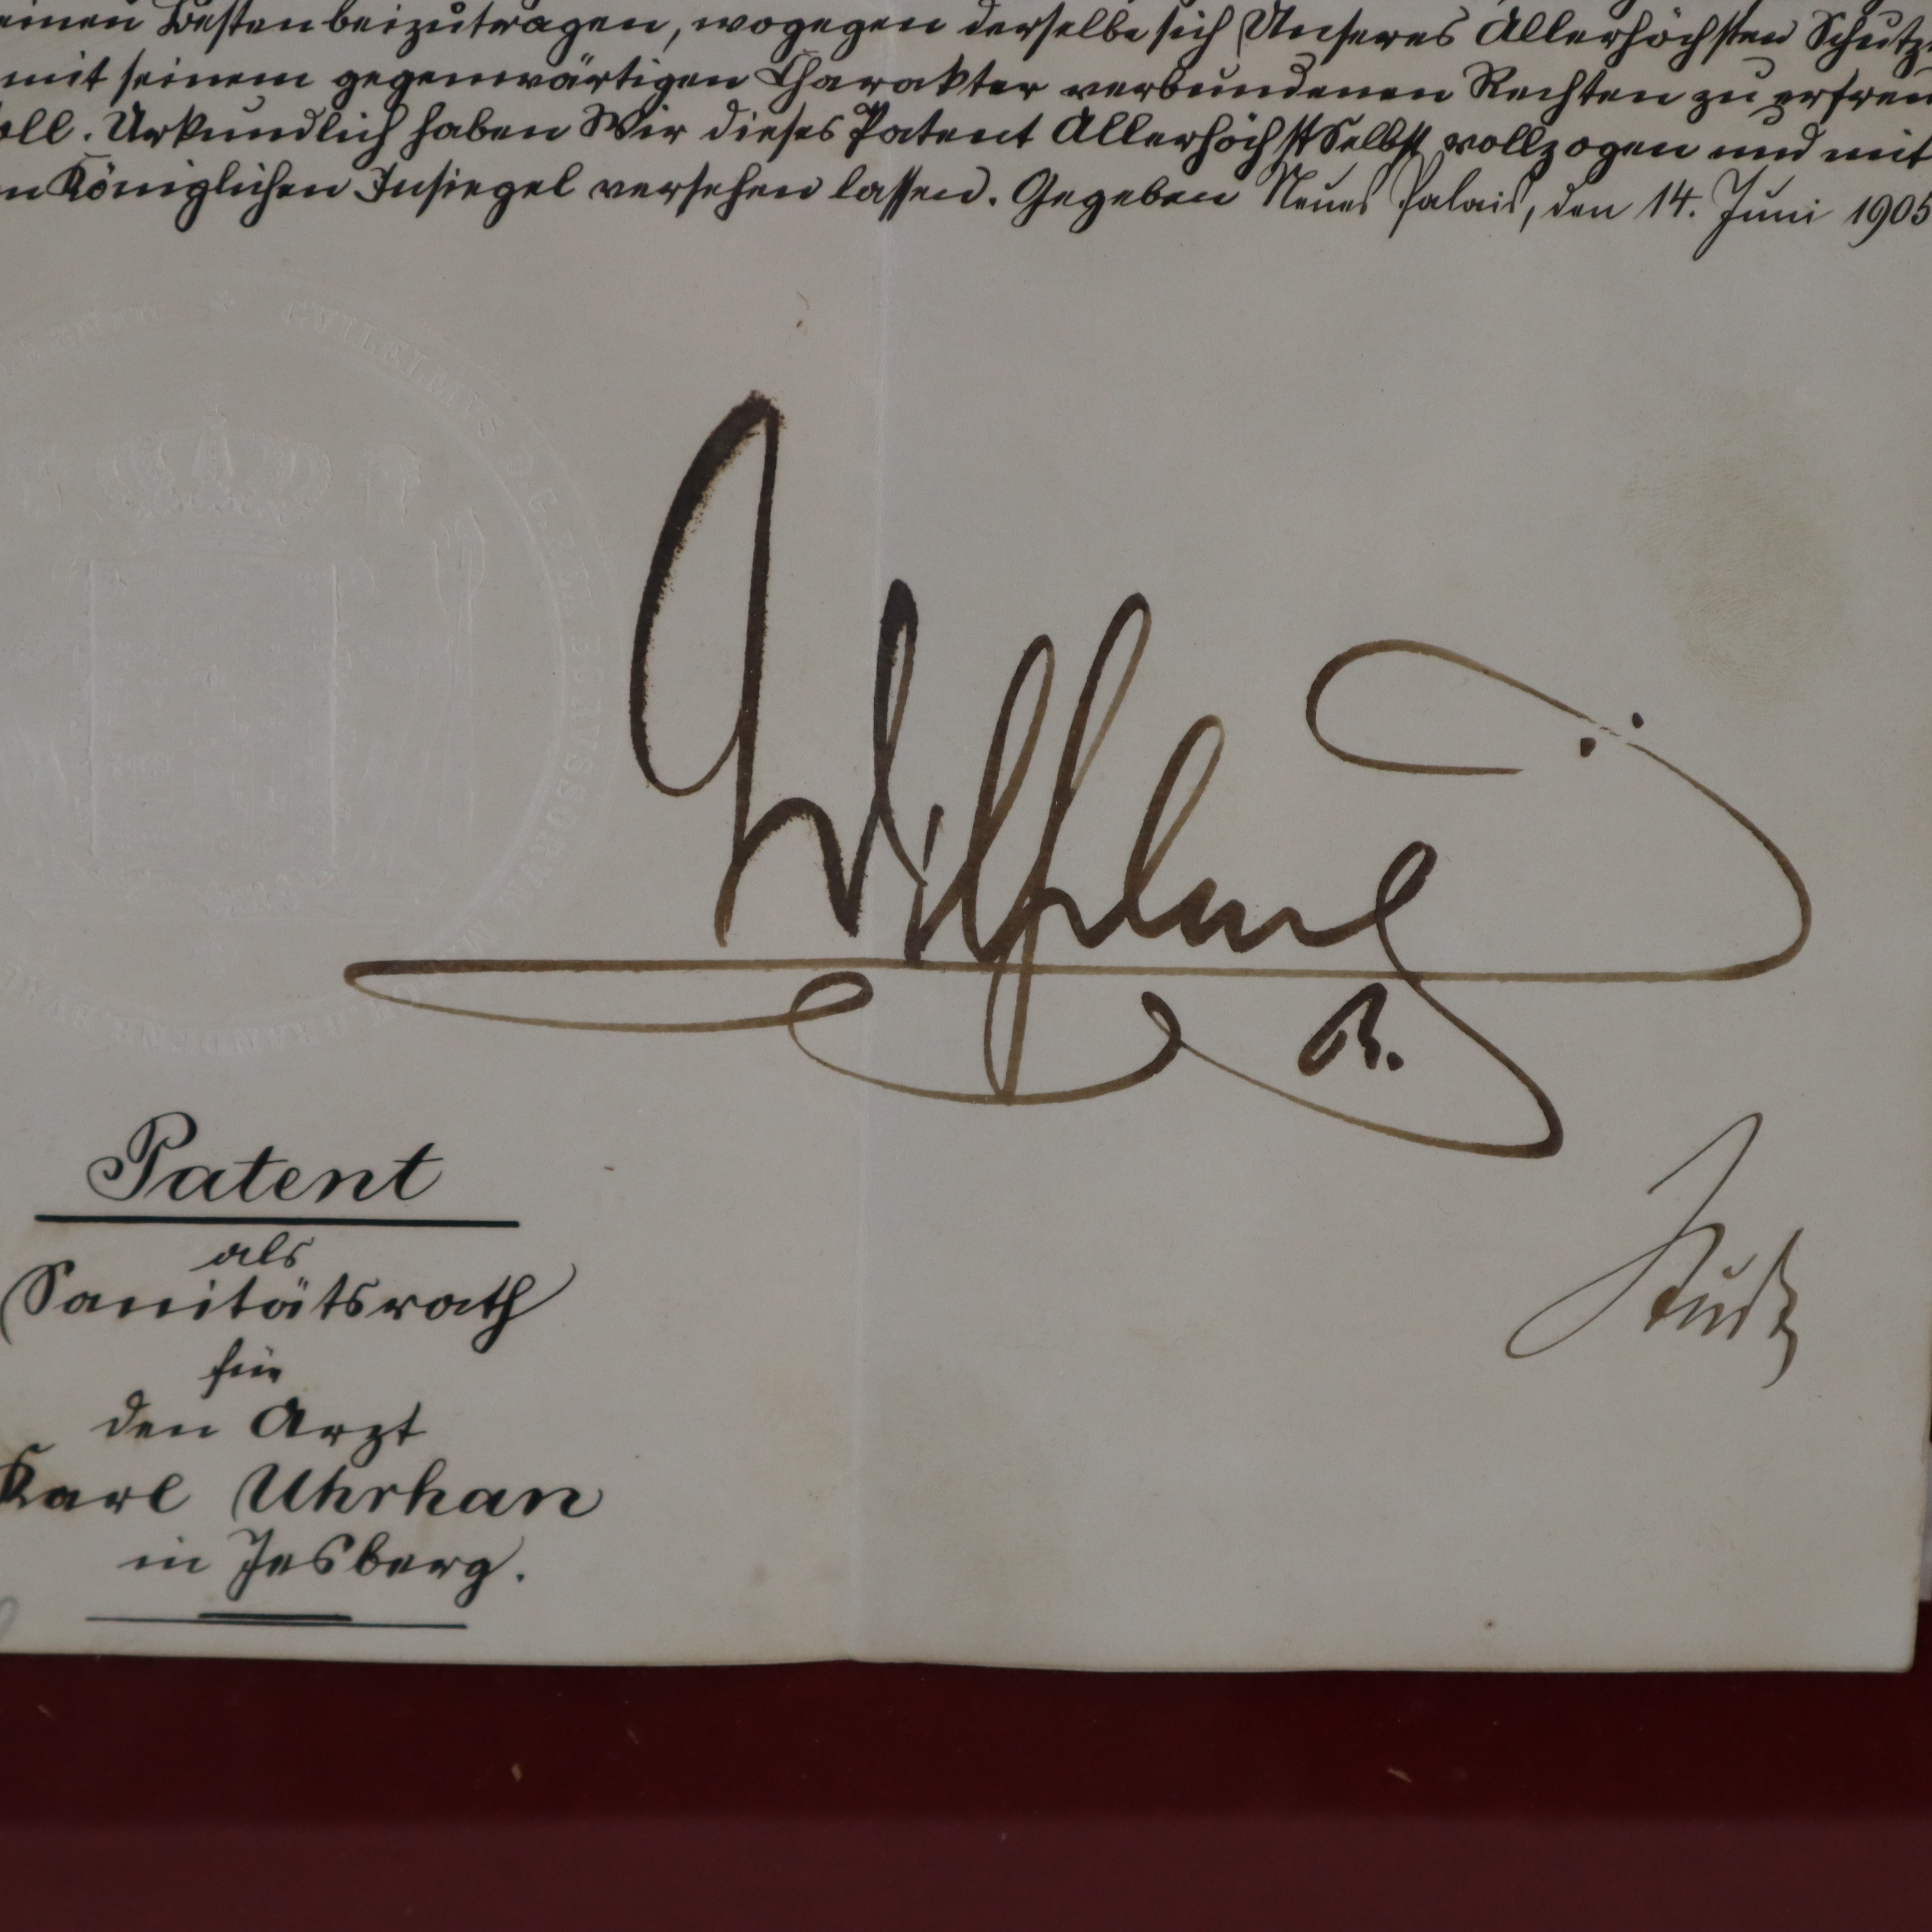 einen Besten beizutragen, wogegen derselbe sich Unseres Allerhöchsten Schutz
mit seinem gegenwärtigen Charakter verbundenen Rechten zu erfreu
oll. Urkundlich haben Wir dieses Patent AllerhöchstSelbst vollzogen und mit
n Königlichen Insiegel versehen lassen. Gegeben Neues Palais, den 14. Juni 1905
GVILELMVS D.G.
Wilhelm
R.
Studt
Patent
als
Sanitätsrath
für
den Arzt
Karl Uhrhan
in Jesberg.